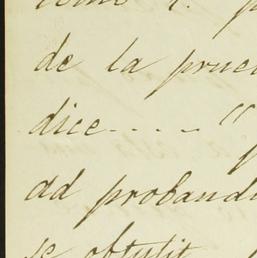 de la prue
dice - - - - - "
ad probandu
se obtulit